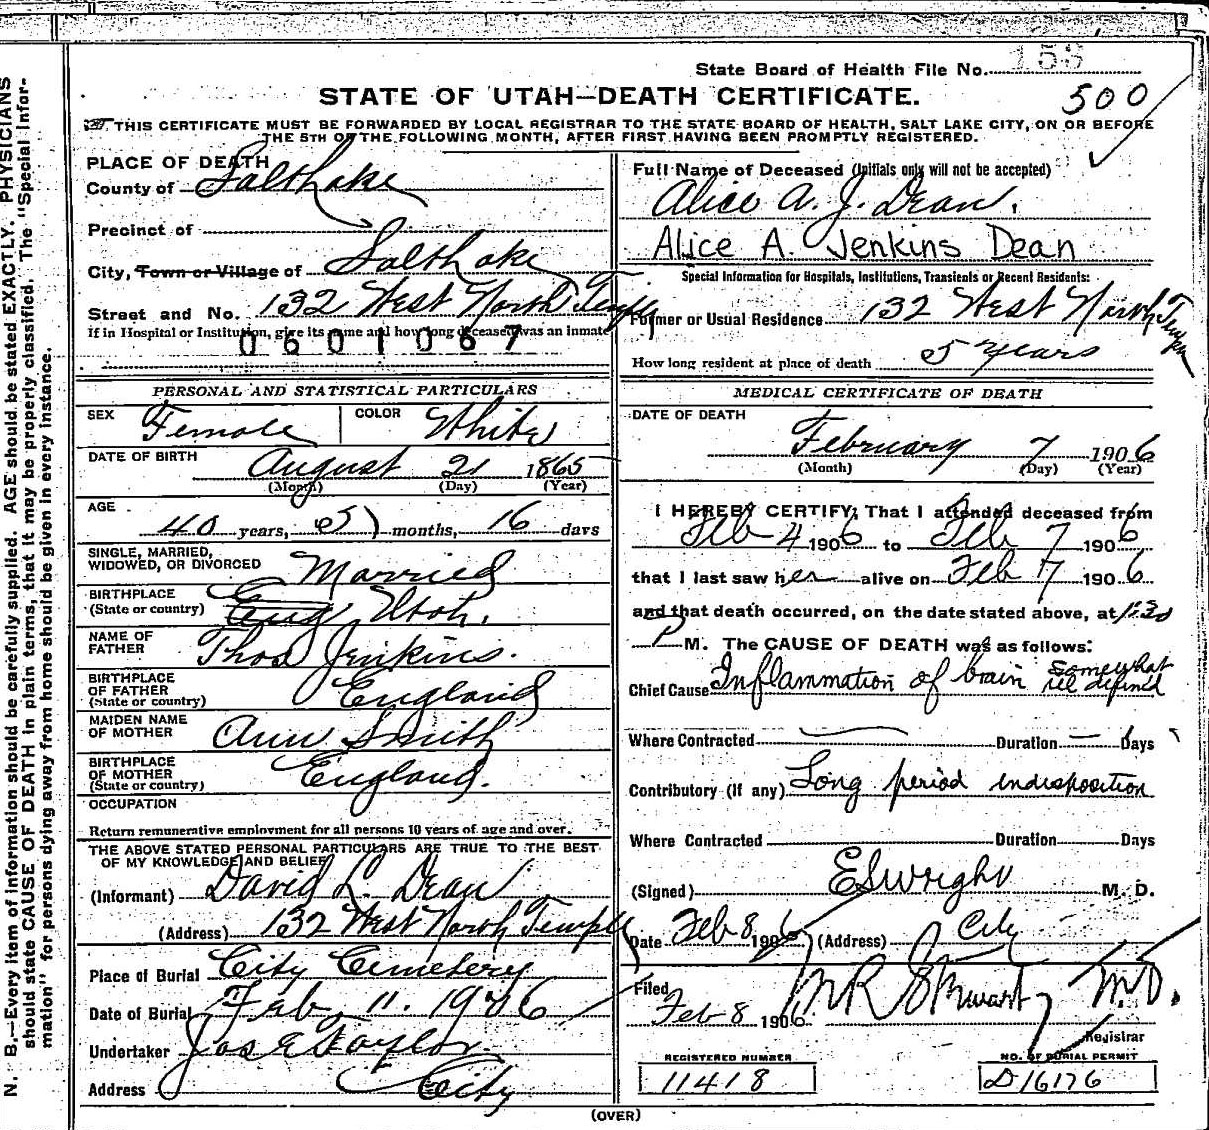 State Board of Health File No. 153
STATE OF UTAH—DEATH CERTIFICATE.
500
THIS CERTIFICATE MUST BE FORWARDED BY LOCAL REGISTRAR TO THE STATE BOARD OF HEALTH, SALT LAKE CITY, ON OR BEFORE
THE 5TH OF THE FOLLOWING MONTH, AFTER FIRST HAVING BEEN PROMPTLY REGISTERED.
N. B.—Every item of information should be carefully supplied. AGE should be stated EXACTLY. PHYSICIANS
should state CAUSE OF DEATH in plain terms, that it may be properly classified. The "Special Infor-
mation" for persons dying away from home should be given in every instance.
PLACE OF DEATH
County of Salt Lake
Precinct of
City, Town or Village of Salt Lake
Street and No. 132 West North Temple
If in Hospital or Institution, give its name and how long deceased was an inmate
0601067
PERSONAL AND STATISTICAL PARTICULARS
SEX Female COLOR White
DATE OF BIRTH August 21 1865
(Month) (Day) (Year)
AGE 40 years, 5 months, 16 days
SINGLE, MARRIED,
WIDOWED, OR DIVORCED Married
BIRTHPLACE
(State or country) Eng Utah.
NAME OF
FATHER Thos Jenkins.
BIRTHPLACE
OF FATHER
(State or country) England
MAIDEN NAME
OF MOTHER Ann Smith
BIRTHPLACE
OF MOTHER
(State or country) England.
OCCUPATION
Return remunerative employment for all persons 10 years of age and over.
THE ABOVE STATED PERSONAL PARTICULARS ARE TRUE TO THE BEST
OF MY KNOWLEDGE AND BELIEF
(Informant) David L. Dean
(Address) 132 West North Temple
Place of Burial City Cemetery
Date of Burial Feb. 11. 1906
Undertaker Jos E Taylor
Address City
Full Name of Deceased (Initials only will not be accepted)
Alice A. J. Dean.
Alice A. Jenkins Dean
Special Information for Hospitals, Institutions, Transients or Recent Residents:
Former or Usual Residence 132 West North Temple
How long resident at place of death 5 years
MEDICAL CERTIFICATE OF DEATH
DATE OF DEATH
February 7 1906
(Month) (Day) (Year)
I HEREBY CERTIFY, That I attended deceased from
Feb 4 1906 to Feb 7 1906
that I last saw her alive on Feb 7 1906
and that death occurred, on the date stated above, at 1:30
P M. The CAUSE OF DEATH was as follows:
Chief Cause Inflammation of brain somewhat ill defined
Where Contracted — Duration — Days
Contributory (if any) Long period indisposition
Where Contracted Duration Days
(Signed) E S Wright M. D.
Date Feb 8, 1906 (Address) City
Filed
Feb 8 1906 M.D.
Registrar
REGISTERED NUMBER
11418
NO. OF BURIAL PERMIT
D16176
(OVER)